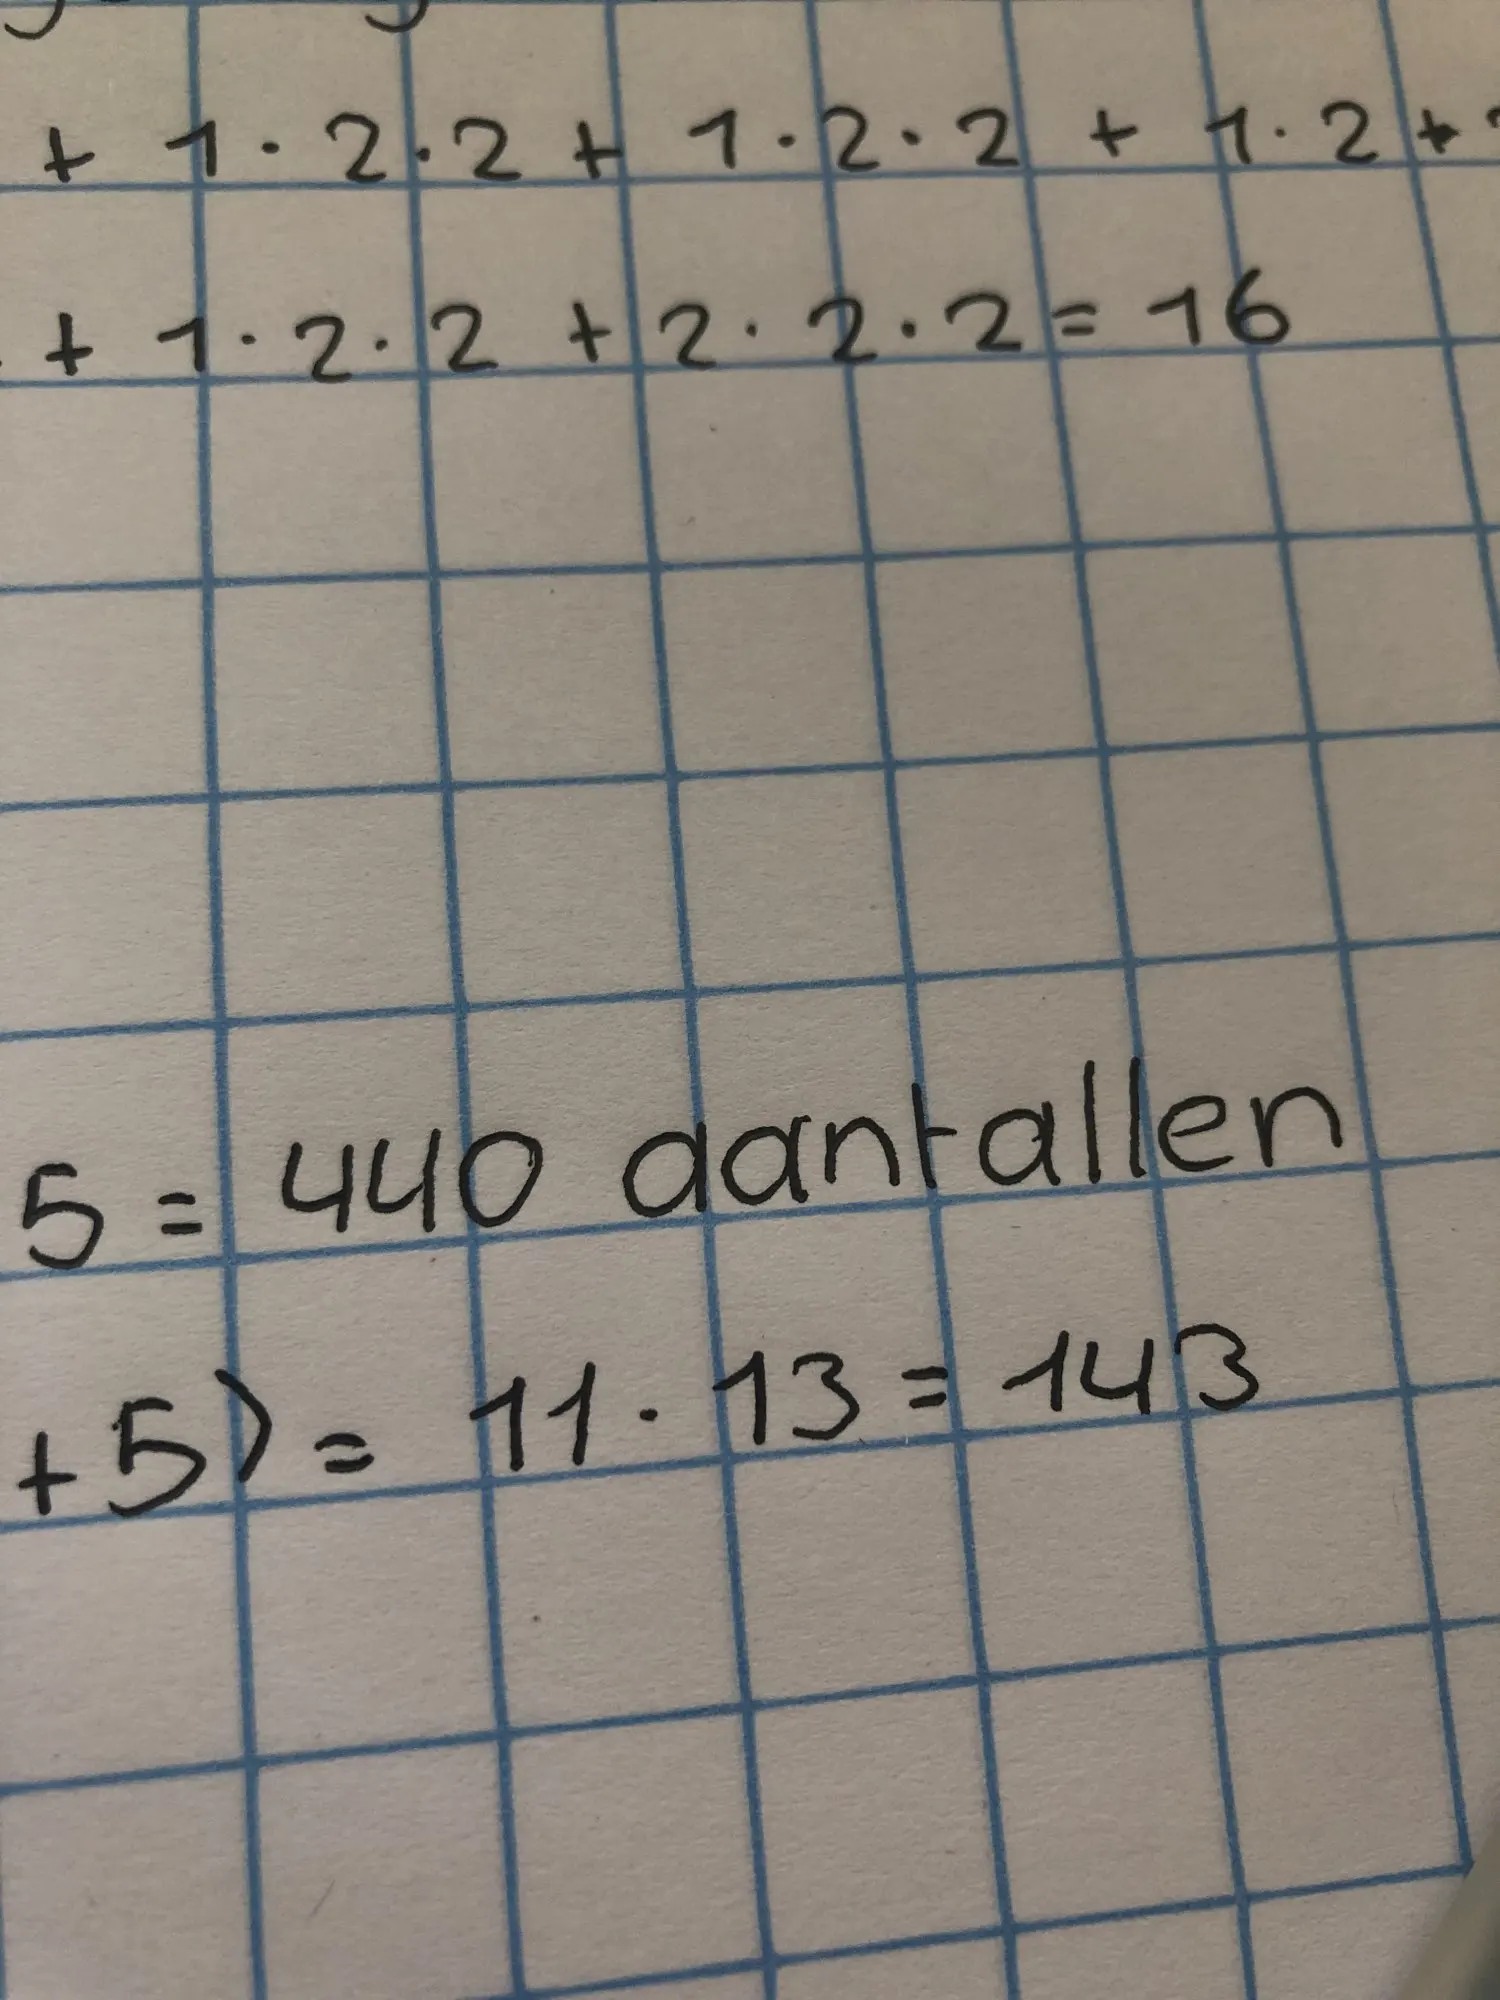 + 1 · 2 · 2 + 1 · 2 · 2 + 1 · 2 +
+ 1 · 2 · 2 + 2 · 2 · 2 = 16
5 = 440 aantallen
+ 5) = 11 · 13 = 143